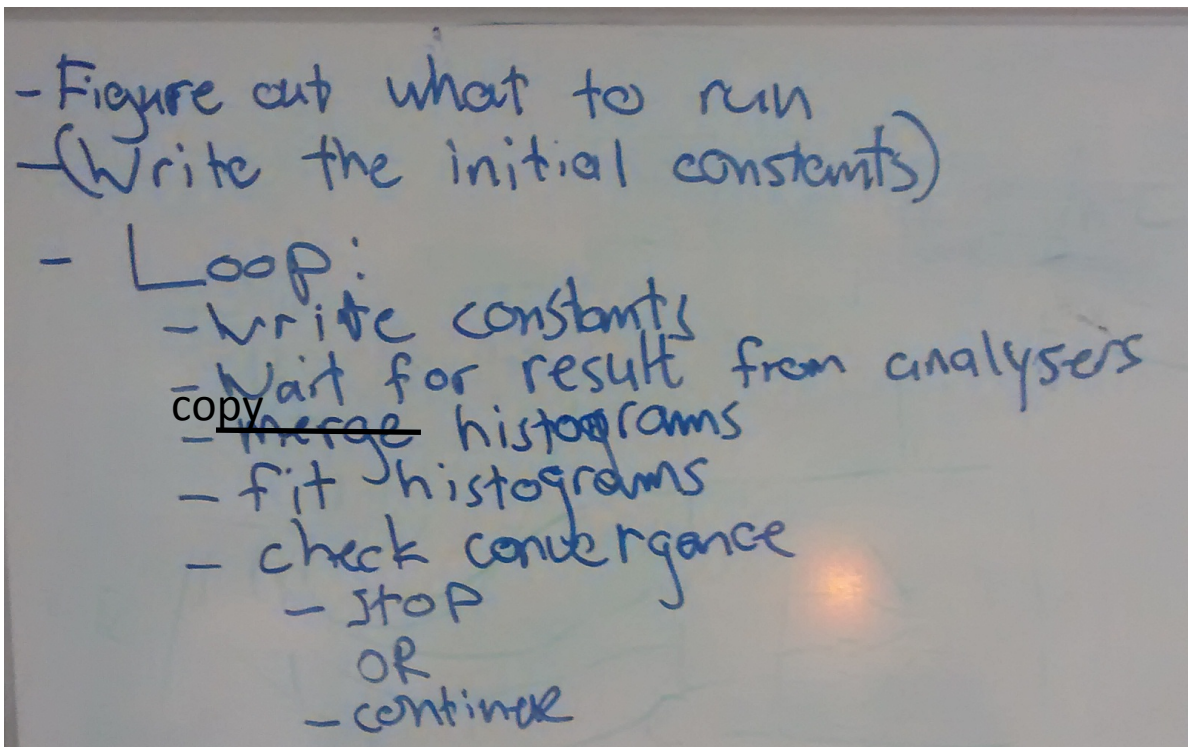 - Figure out what to run
- (Write the initial constants)
- Loop:
- Write constants
- Wait for result from analysers
copy
- merge histograms
- fit histograms
- check convergance
- STOP
OR
- continue